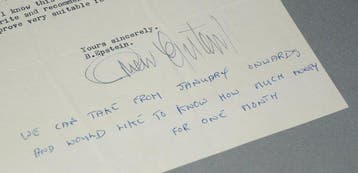 I know this
rite and recomme
prove very suitable f
Yours sincerely,
B.Epstein.
WE CAN TAKE FROM JANUARY ONWARDS
AND WOULD LIKE TO KNOW HOW MUCH MONEY
FOR ONE MONTH